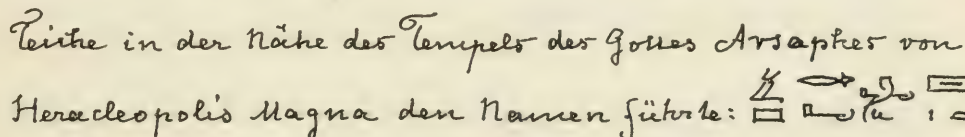 Teiche in der Nähe des Tempels des Gottes Arsaphes von
Heracleopolis Magna den Namen führte: